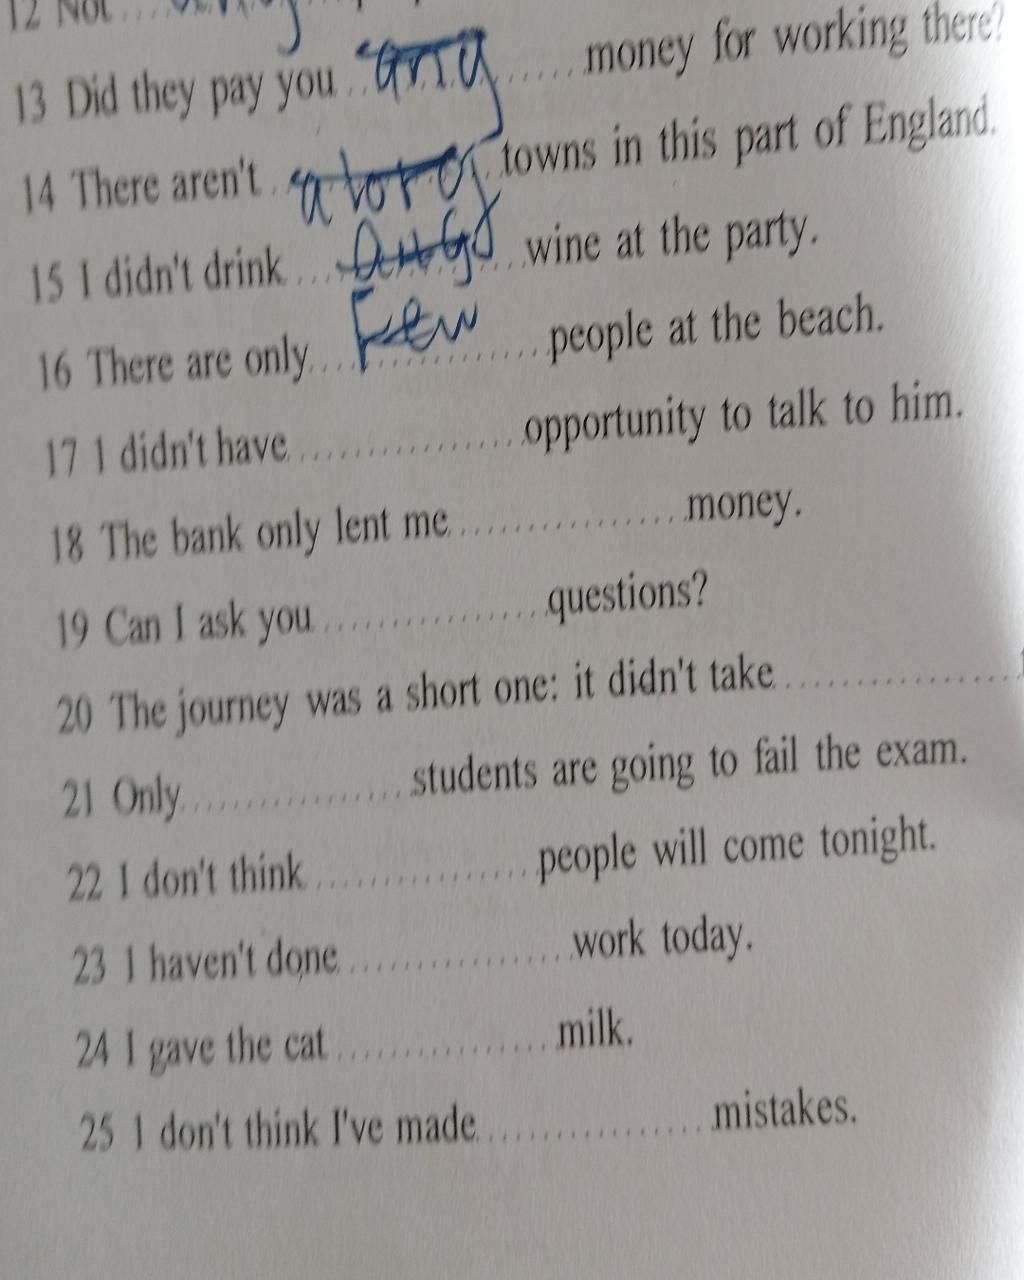 12 Not ....
13 Did they pay you .. any ...... money for working there?
14 There aren't .. a lot of .. towns in this part of England.
15 I didn't drink .... ... wine at the party.
16 There are only .... Few .............. people at the beach.
17 I didn't have ................. opportunity to talk to him.
18 The bank only lent me ................. money.
19 Can I ask you ................. questions?
20 The journey was a short one: it didn't take .................
21 Only ................. students are going to fail the exam.
22 I don't think ................. people will come tonight.
23 I haven't done ................. work today.
24 I gave the cat ................. milk.
25 I don't think I've made ................. mistakes.